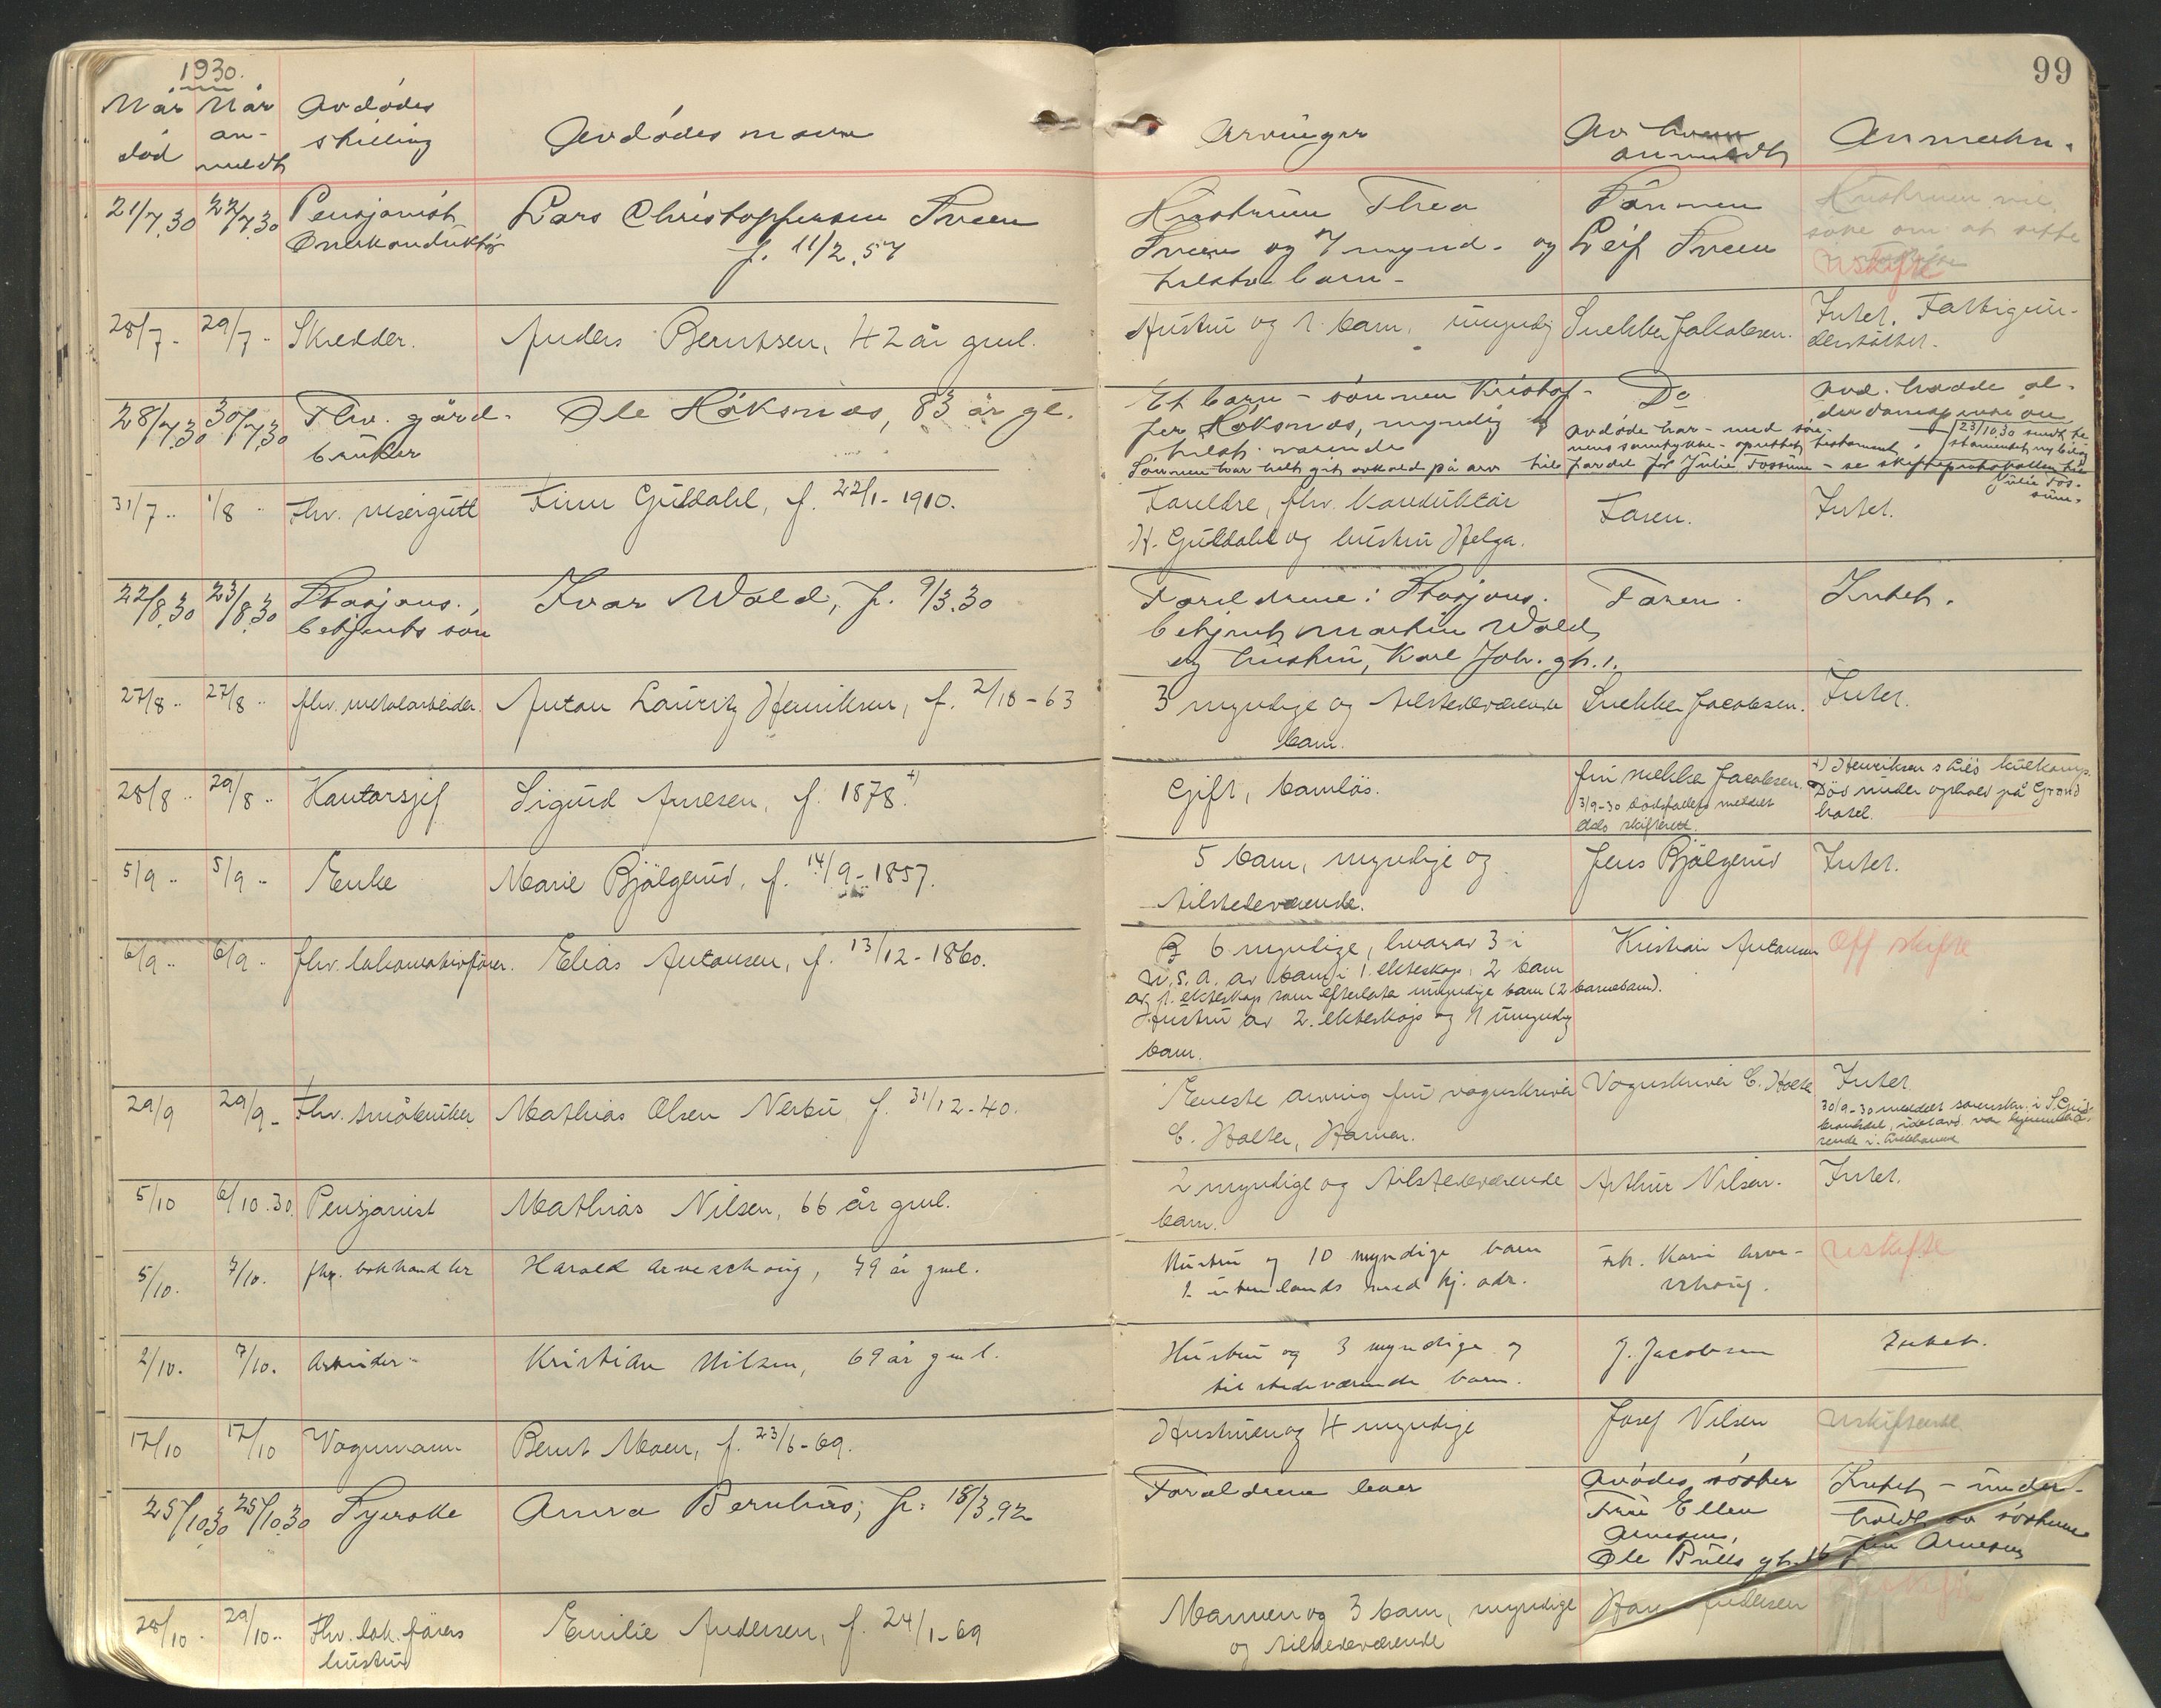 1930.
Når død
Når anmeldt
Avdødes stilling
Avdødes navn
Arvinger
Av hvem anmeldt
Anmerkn.
99
21/7.30 22/7.30 Pensjonist Lars Christoffersen Sveen
Overkonduktør f. 11/2.57
Hustruen Thea Sønnen Hustruen vil
Sveen og 7 mynd. og Leif Sveen søke om at sitte
tilstev. barn - Uskifte
28/7 - 29/7 - Skredder. Anders Berntsen, 42 år gml.
Hustru og 1 barn, umyndig Snekker Jakobsen. Intet. Fattigun-
derstøttet.
28/7.30 30/7.30 Fhv. gård- Ole Høksnes, 83 år gl.
bruker
Et barn - sønnen Kristof- Do avd. hadde al-
fer Høksnes, myndig og
tilst. værende
avdøde har - med søn-
nens samtykke - oprettet testament
Sønnen har helt git avkald på arv til fordel for Julie Fossum - se skifteprotokollen
31/7 .. 1/8 .. Fhv. visergutt Finn Guldahl, f. 22/1 - 1910.
Foreldre, fhv. konduktør Faren. Intet.
H. Guldahl og hustru Helga.
22/8.30 23/8.30 Stasjons- Ivar Wold, f. 9/3.30
betjents søn
Forældrene: Stasjons- Faren. Intet.
betjent Martin Wold
og hustru, Karl Joh. gt. 1.
27/8 .. 27/8 .. fhv. metalarbeider. Anton Lauritz Henriksen, f. 2/10 - 63
3 myndige og tilstedeværende Snekker Jacobsen. Intet.
barn.
28/8 .. 29/8 .. Kontorsjef Sigurd Arnesen, f. 1878. +)
Gift, barnløs. fru snekker Jacobsen. +) Henriksen
3/9-30 dødsfallet meldt Død under ophold på Grand
Oslo skifterett. hotel.
5/9 .. 5/9 .. Enke Marie Bjølgerud, f. 14/9 - 1857.
5 barn, myndige og Jens Bjølgerud Intet.
tilstedeværende.
6/9 .. 6/9 .. fhv. lokomotivfører. Elias Antonsen, f. 13/12 - 1860.
6 myndige, hvorav 3 i Kristian Antonsen Off skifte
U.S.A. av barn i 1. ekteskap, 2 barn
av 1. ekteskap som efterlate umyndige barn (2 barnebarn).
Hustru av 2. ekteskap og 1 umyndig
barn.
29/9 29/9 - Fhv. småbruker Mathias Olsen Nerbu f. 31/12 - 40.
Eneste arving fru vognskriver Vognskriver C. Holter Intet.
C. Holter, Hamar. 30/9-30 meldt sorenskr. i S. Gud-
brandsdal, idet avd. var hjemmehø-
rende i
5/10 6/10.30. Pensjonist Mathias Nilsen, 66 år gml.
2 myndige og tilstedeværende Arthur Nilsen. Intet.
barn.
5/10. 7/10. fhv. bokhandler Harald Arveschoug, 79 år gml.
Hustru og 10 myndige barn Frk. Kari Arve- Uskifte
1 utenlands med kj. adr. schoug.
2/10. 7/10. Arbeider - Kristian Nilsen, 69 år gml.
Hustru og 3 myndige og J. Jacobsen Intet.
tilstedeværende barn.
17/10 17/10 Vognmann Bernt Moen, f. 23/6 - 69.
Hustruen og 4 myndige Josef Nilsen Uskiftende
25/10 30 25/10.30 Syerske Anna Bernhus, f. 15/3.92
Forældrene lever Avdødes søster Intet - under-
Fru Ellen holdt av søsteren
Arnesen, fru Arnesen
Ole Bulls gt. 16
28/10 - 29/10 .. Fhv. lok. førers Emilie Andersen, f. 24/1 - 69
hustru
Mannen og 3 barn, myndige Andersen
og tilstedeværende